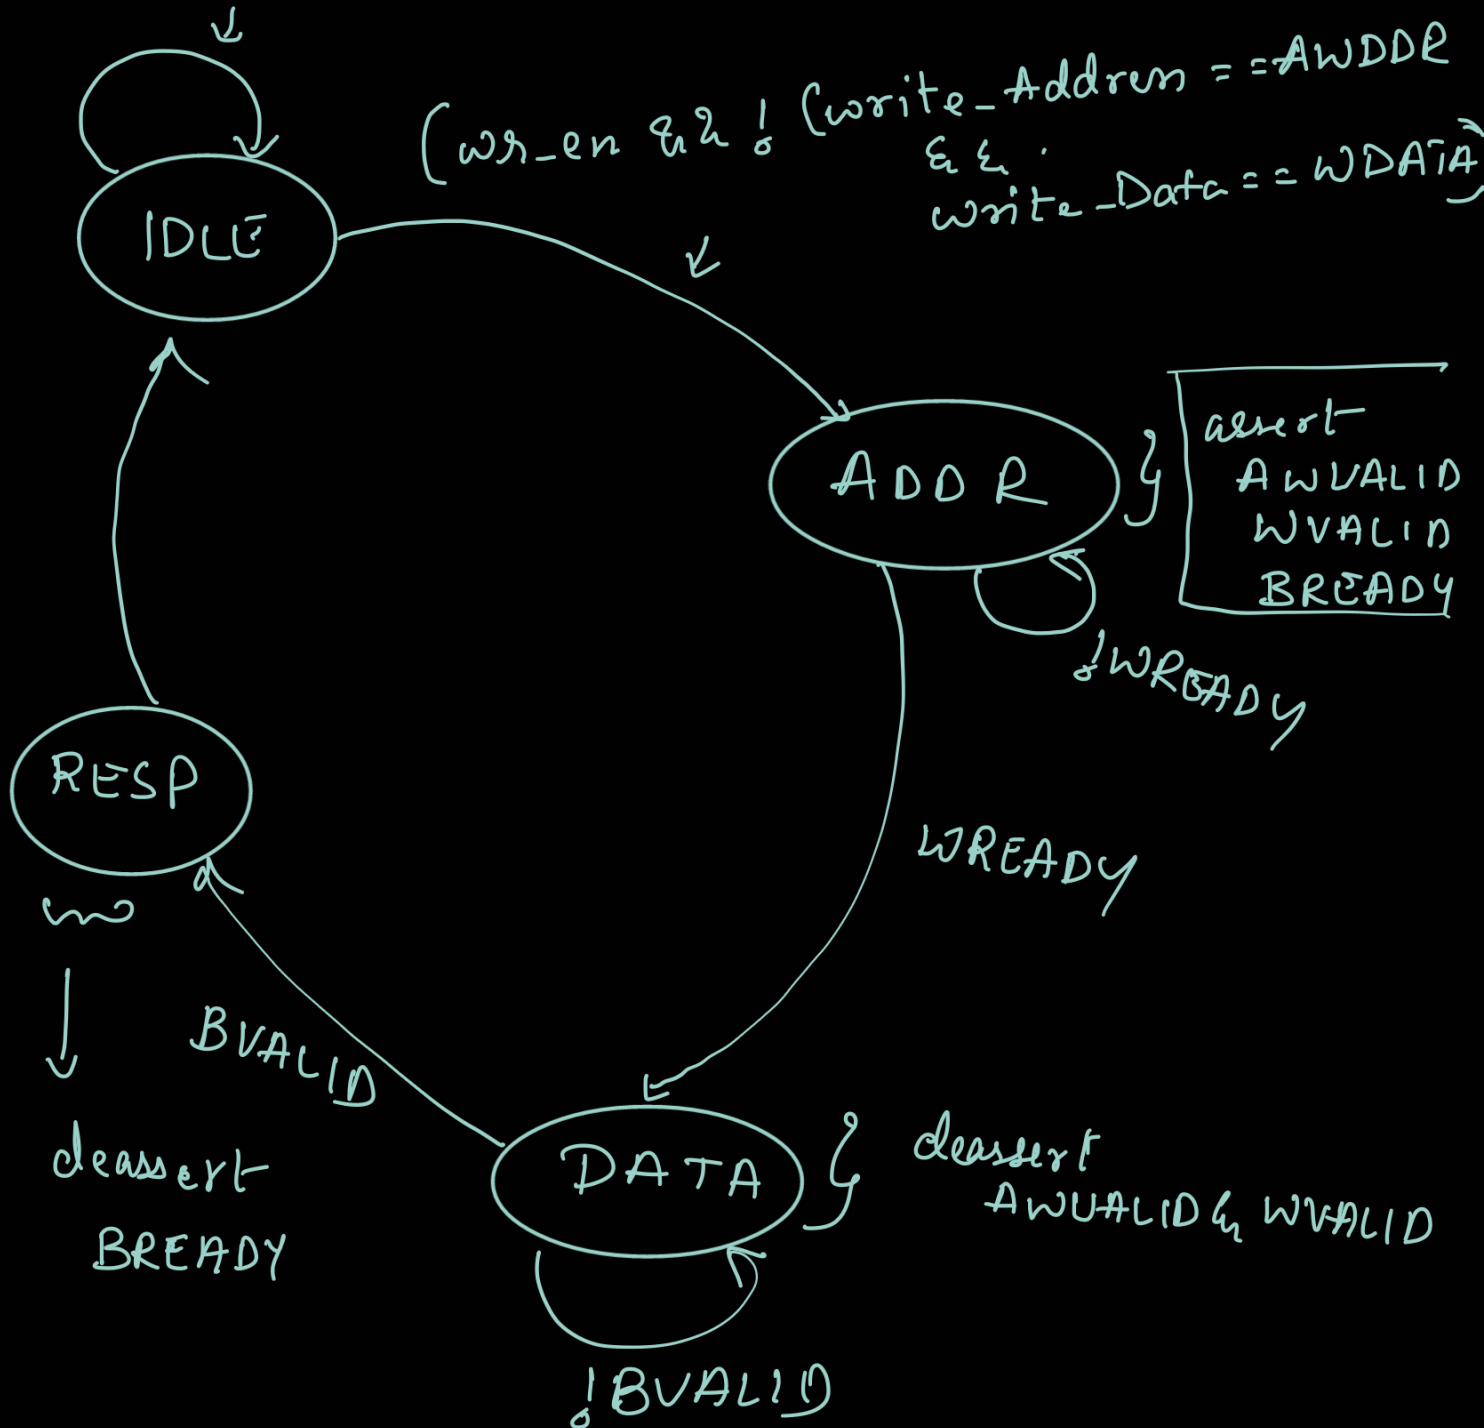 (wr_en && !(write_Address == AWDDR
&&
write_Data == WDATA)
IDLE
ADDR
assert
AWVALID
WVALID
BREADY
!WREADY
RESP
WREADY
BVALID
deassert
BREADY
DATA
deassert
AWVALID & WVALID
!BVALID